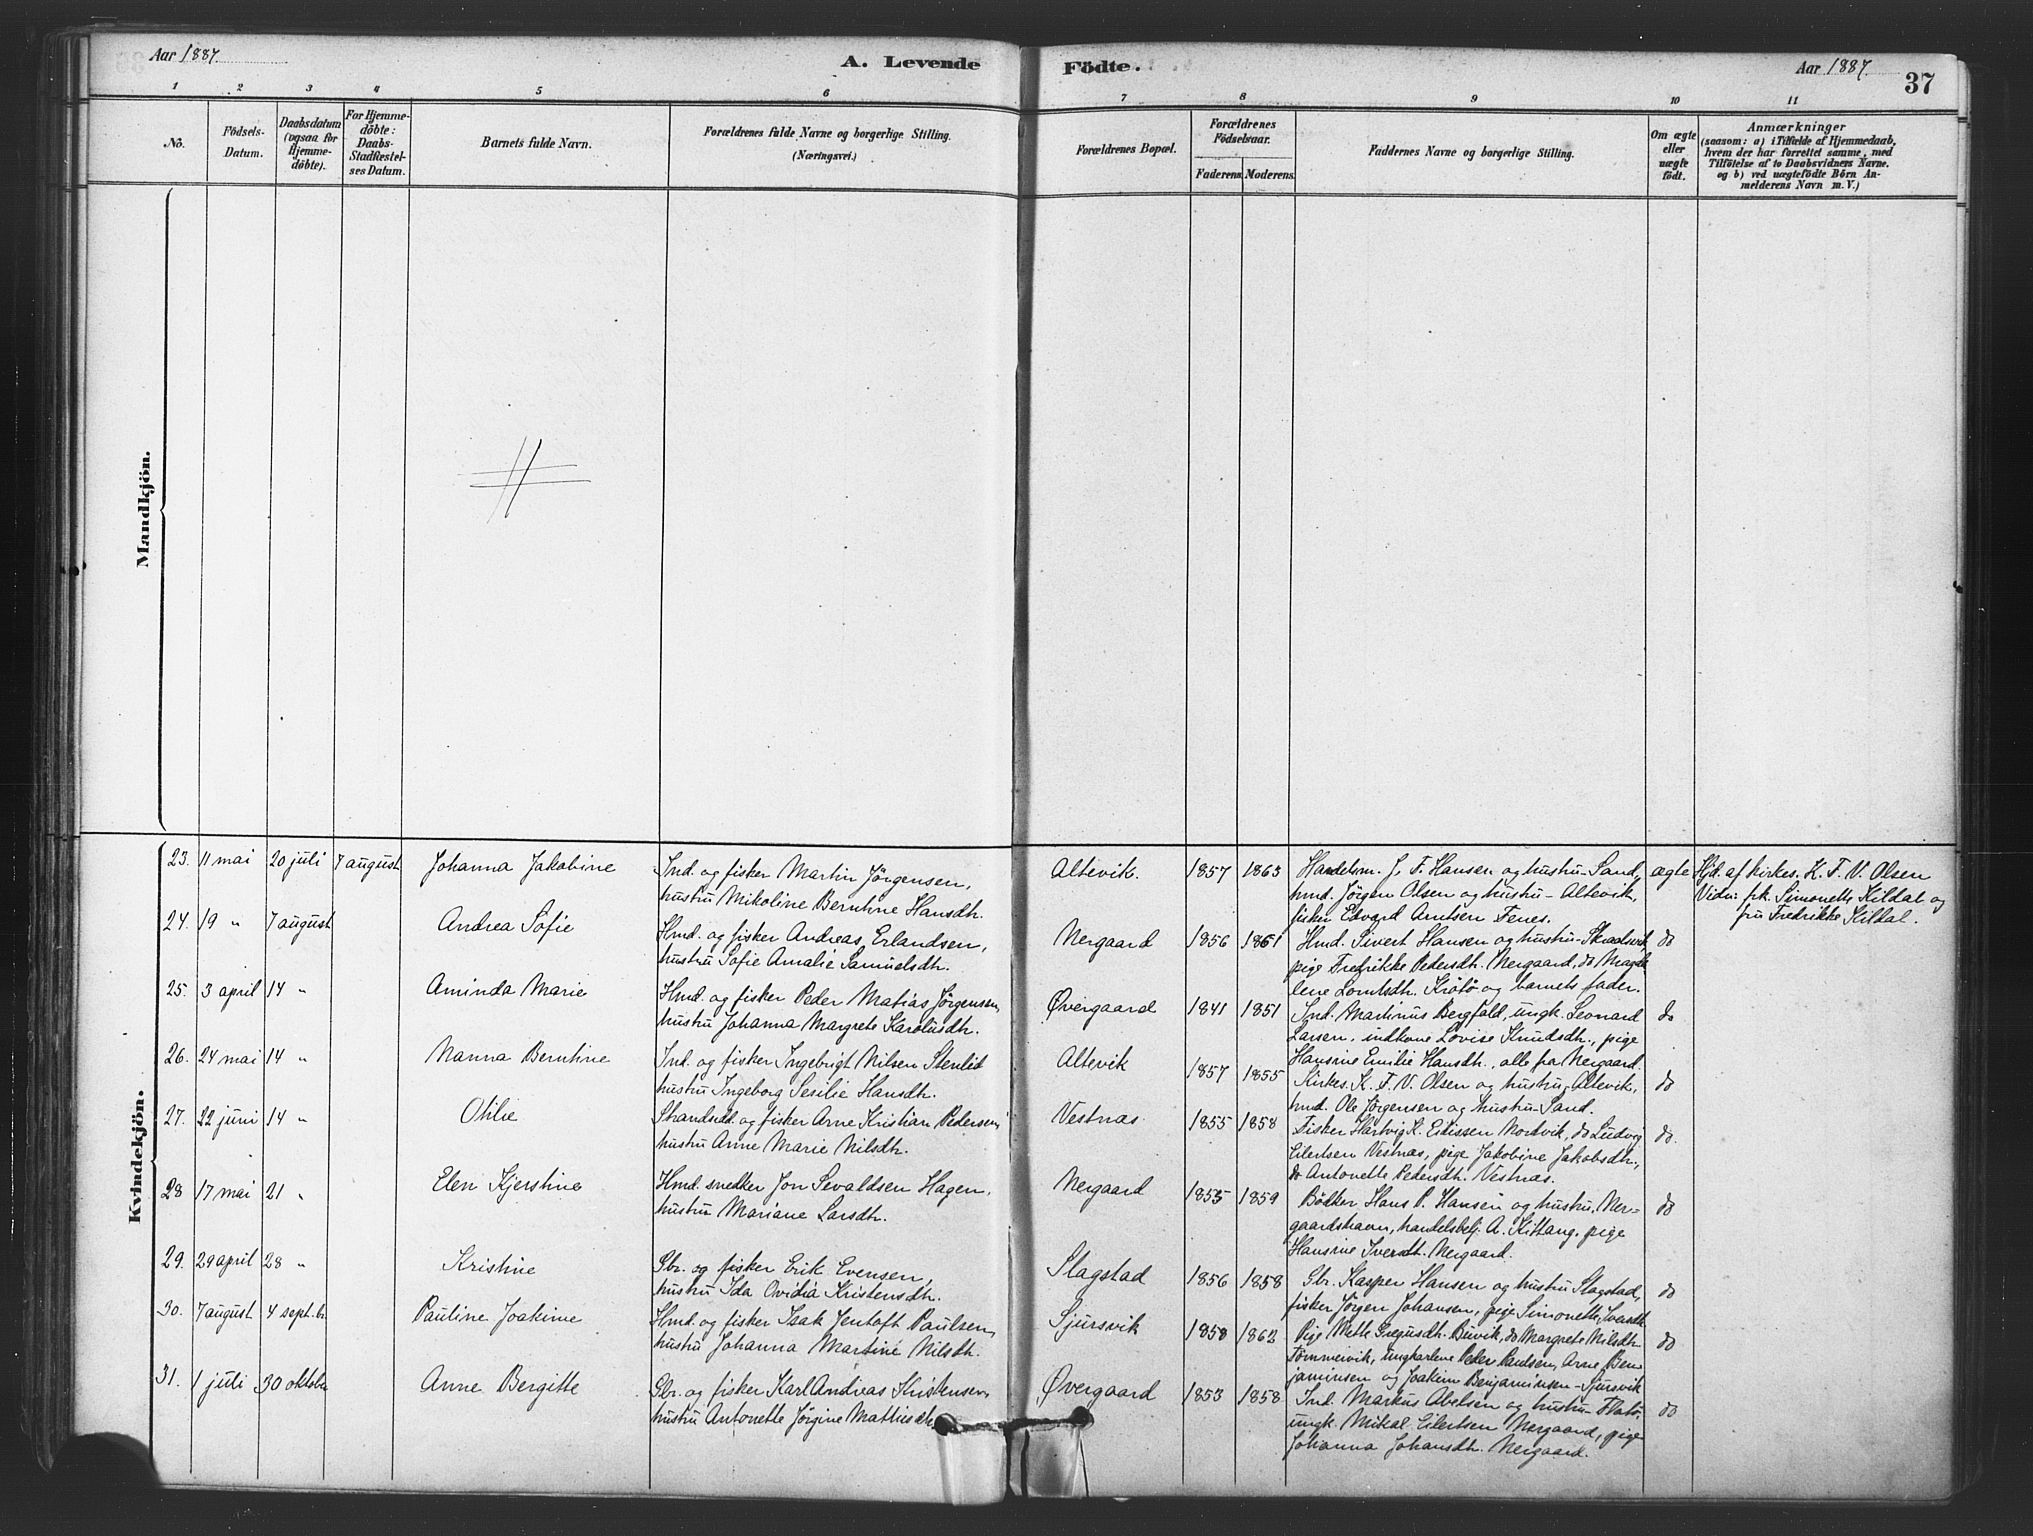 Aar 1887.
A. Levende
Födte.
Aar 1887.
37
1 2 3 4 5 6 7 8 9 10 11
No.
Födsels-
Datum.
Daabsdatum
(ogsaa for
Hjemme-
döbte).
For Hjemme-
döbte:
Daabs-
Stadfæstel-
ses Datum.
Barnets fulde Navn.
Forældrenes fulde Navne og borgerlige Stilling.
(Næringsvei.)
Forældrenes Bopæl.
Forældrenes
Födselsaar.
Faderens Moderens
Faddernes Navne og borgerlige Stilling.
Om ægte
eller
uægte
födt.
Anmærkninger
(saasom: a) i Tilfælde af Hjemmedaab,
hvem der har forrettet samme, med
Tilföielse af to Daabsvidners Navne.
og b) ved uægtefödte Börn An-
melderens Navn m. V.)
Mandkjön.
Kvindekjön.
23. 11 mai 20 juli 7 august Johanna Jakobine
Ind. og fisker Martin Jørgensen,
hustru Mikoline Bernhine Hansdtr.
Altevik. 1857 1863
Handelsm. J. F. Hansen og hustru - Sand,
hmd. Jørgen Olsen og hustru - Altevik,
fisker Edvard Arntsen Fenes.
ægte
Hjd. af kirkes. K. F. V. Olsen
Vidn: frk. Simonette Kildal og
fru Fredrikke Kildal.
24. 19 " 7 august Andrea Sofie
Hmd. og fisker Andreas Erlandsen,
hustru Sofie Amalie Samuelsdtr.
Nergaard 1856 1861
Hmd. Sivert Hansen og hustru - Skaalsvik,
pige Fredrikke Pedersdtr. Nergaard, do Magda
lene Lorntsdtr. Krøtø og barnets fader.
do
25. 3 april 14 " Aminda Marie
Hmd. og fisker Peder Matias Jørgensen,
hustru Johanna Margrete Karolusdtr.
Øvergaard 1841 1851
Ind. Martinus Bergfald, ungk. Leonard
Larsen, indkone Lovise Knudsdtr., pige
Hansine Emilie Hansdtr., alle fra Nergaard.
do
26. 24 mai 14 " Nanna Bernhine
Ind. og fisker Ingebrigt Nilsen Stenlid
hustru Ingeborg Sesilie Hansdtr.
Altevik 1857 1855
Kirkes. K. F. V. Olsen og hustru, Altevik,
hmd. Ole Jørgensen og hustru - Sand.
do
27. 22 juni 14 " Otilie
Strandsdd. og fisker Arne Kristian Pedersen,
hustru Anne Marie Nilsdtr.
Vestnas 1855 1858
Fisker Hartvig K. Edissen Nordvik, do Ludvig
Eilertsen Vestnas, pige Jakobine Jakobsdtr.,
do Antonette Pedersdtr. Vestnas.
do.
28 17 mai 21 " Elen Kjerstine
Hmd. snedker Jon Sevaldsen Hagen,
hustru Mariane Larsdtr.
Nergaard 1855 1859
Bødker Hans P. Hansen og hustru, Ner-
gaardshavn, handelsbetj. A. Kittang, pige
Hansine Iversdt. Nergaard.
do
29. 29 april 28 " Kristine
Gbr. og fisker Erik Evensen,
hustru Ida Ovidia Kristensdtr.
Slagstad 1856 1858
Gbr. Kasper Hansen og hustru Slagstad,
fisker Jørgen Johansen, pige Simonette Iversdtr.
do
30. 7 august 4 septbr. Pauline Joakime
Hmd. og fisker Isak Jentoft Paulsen,
hustru Johanna Martine Nilsdtr.
Sjursvik 1858 1862
Pige Mette Gregusdtr. Buvik, do Margrete Nilsdtr.
Tømmervik, ungkarlene Peder Paulsen, Arne Ben
jaminsen og Joakim Benjaminsen - Sjursvik
do
31. 1 juli 30 oktober Anne Bergitte
Gbr. og fisker Karl Andreas Kristensen,
hustru Antonette Jørgine Mathisdtr.
Øvergaard 1853 1858
Ind. Markus Abelsen og hustru - Flatø,
ungk. Mikal Eilertsen Nergaard, pige
Johanna Johansdtr. Nergaard.
do